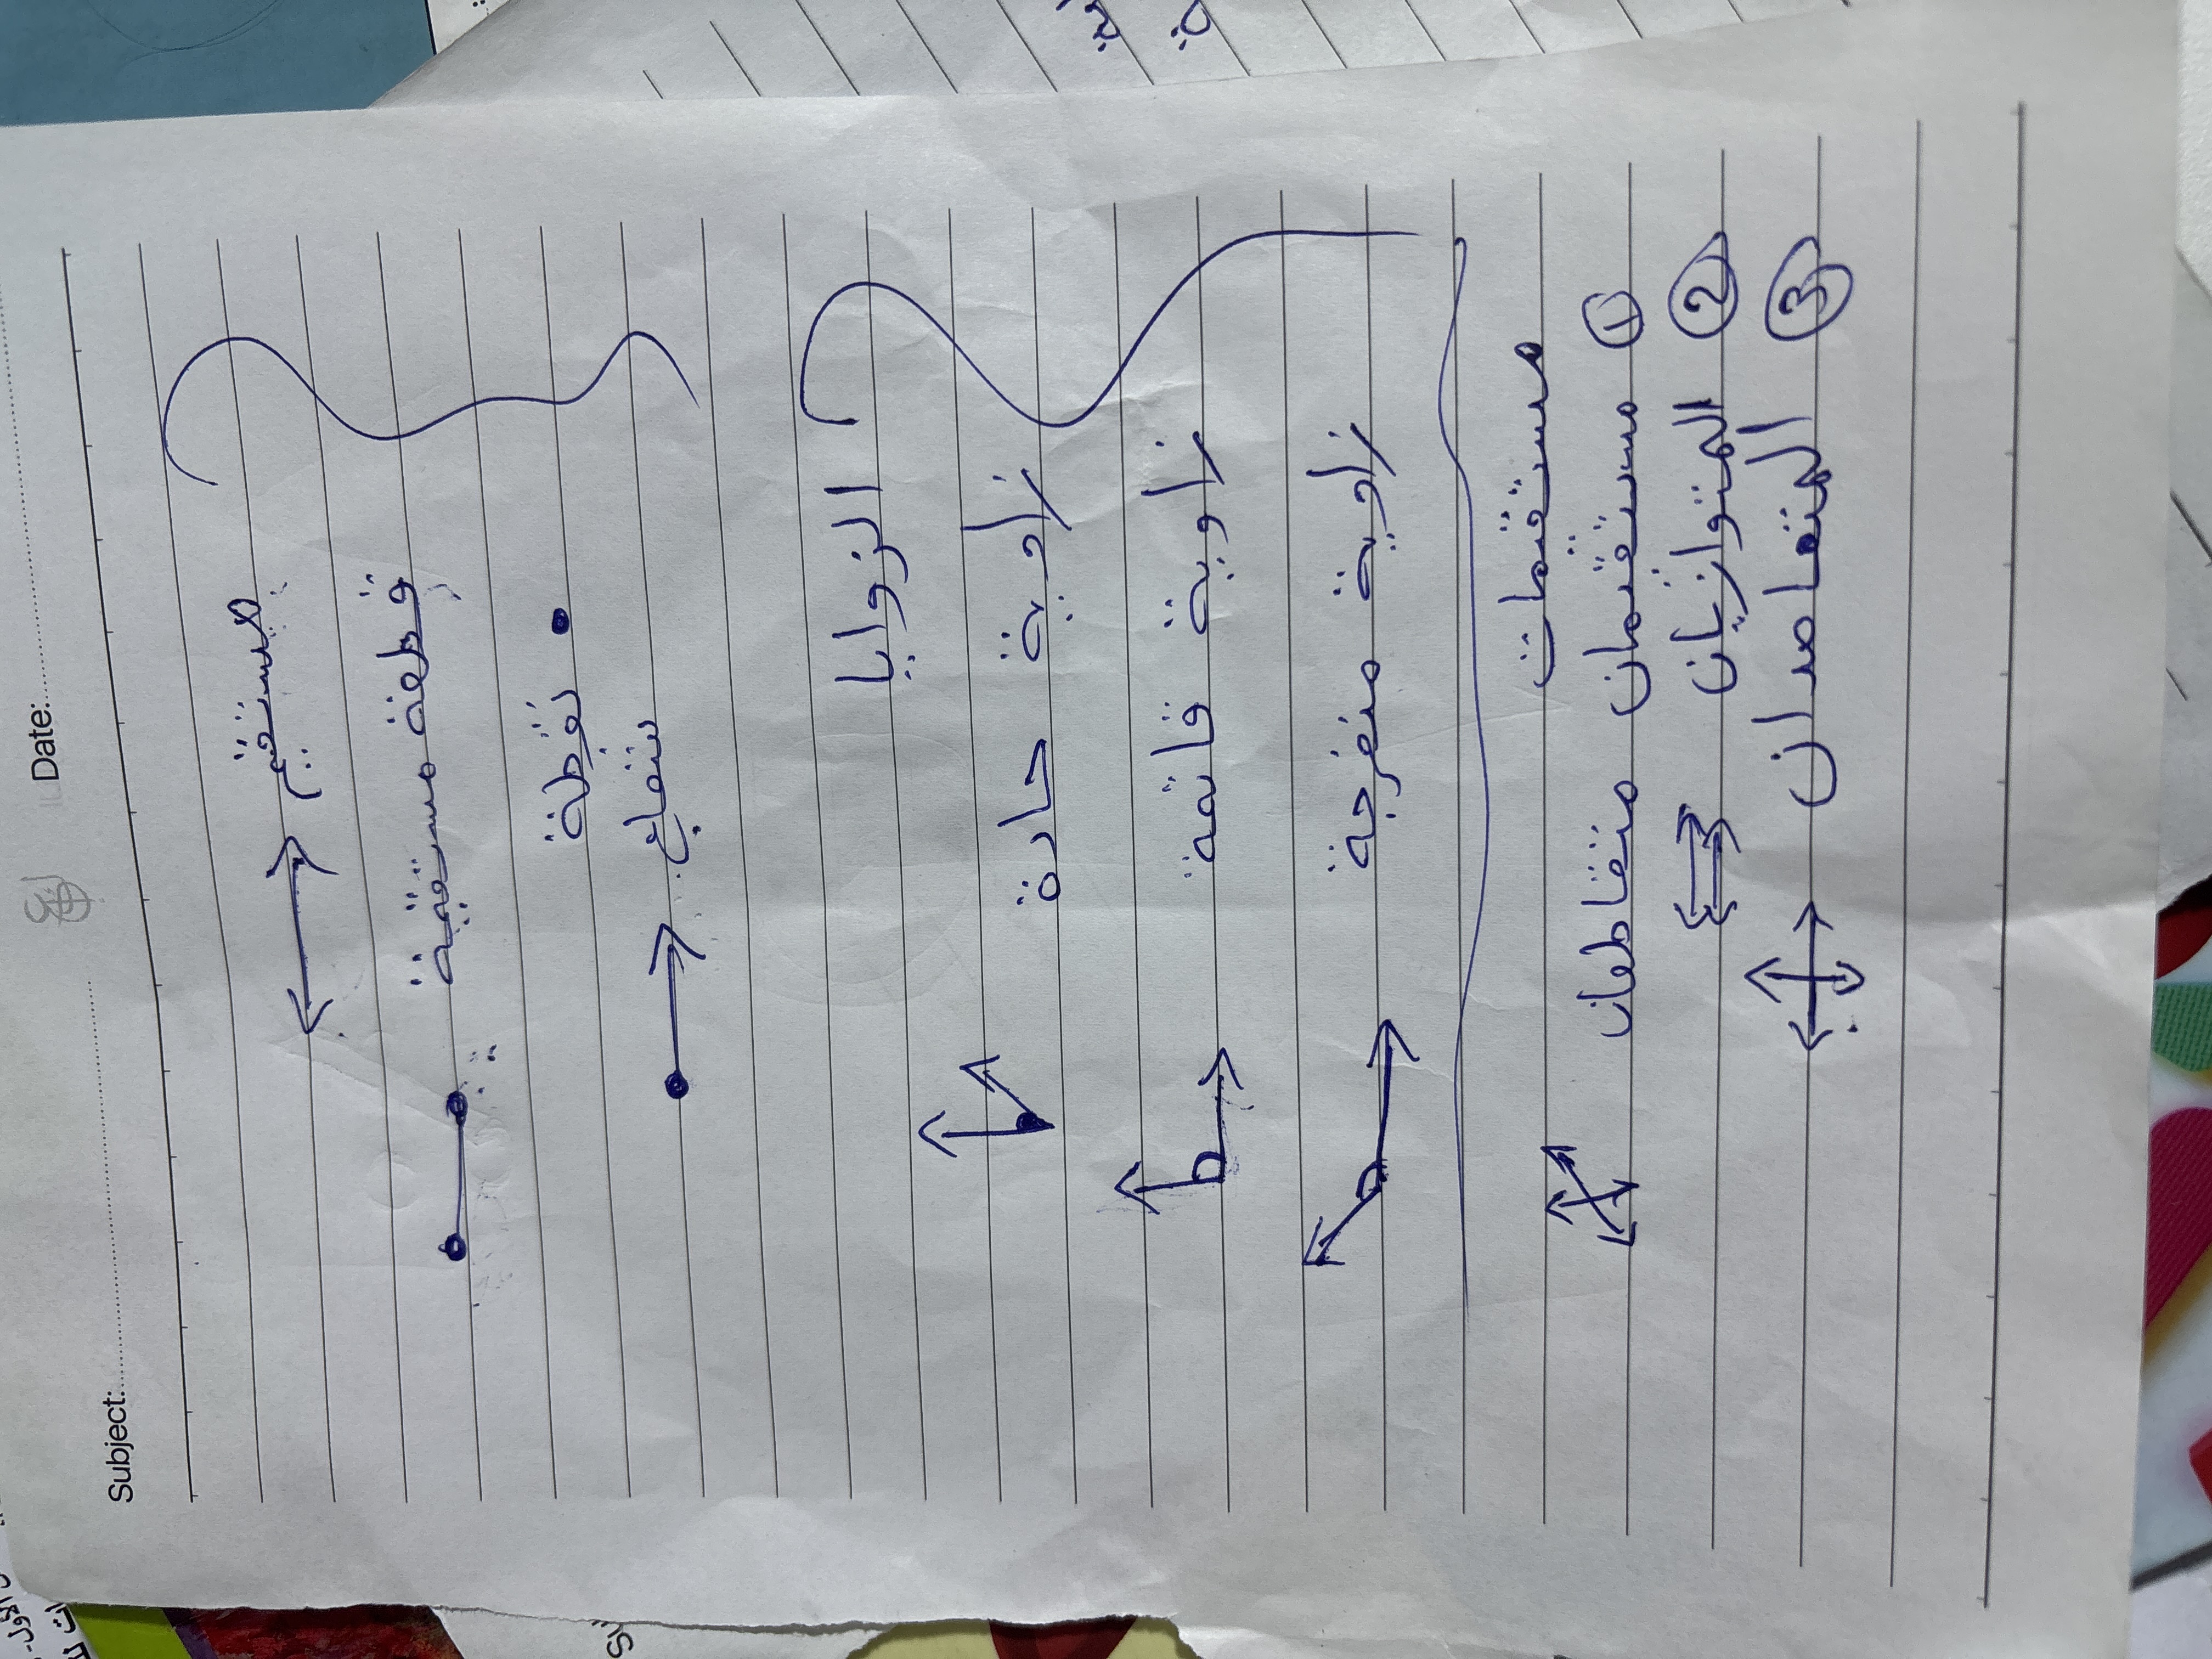 Subject: Date:
مستقيم
قطعة مستقيمة
نقطة
شعاع
الزوايا
زاوية حادة
زاوية قائمة
زاوية منفرجة
مستقمات
① مستقيمان متقاطعان
② المتوازيان
③ المتعامدان